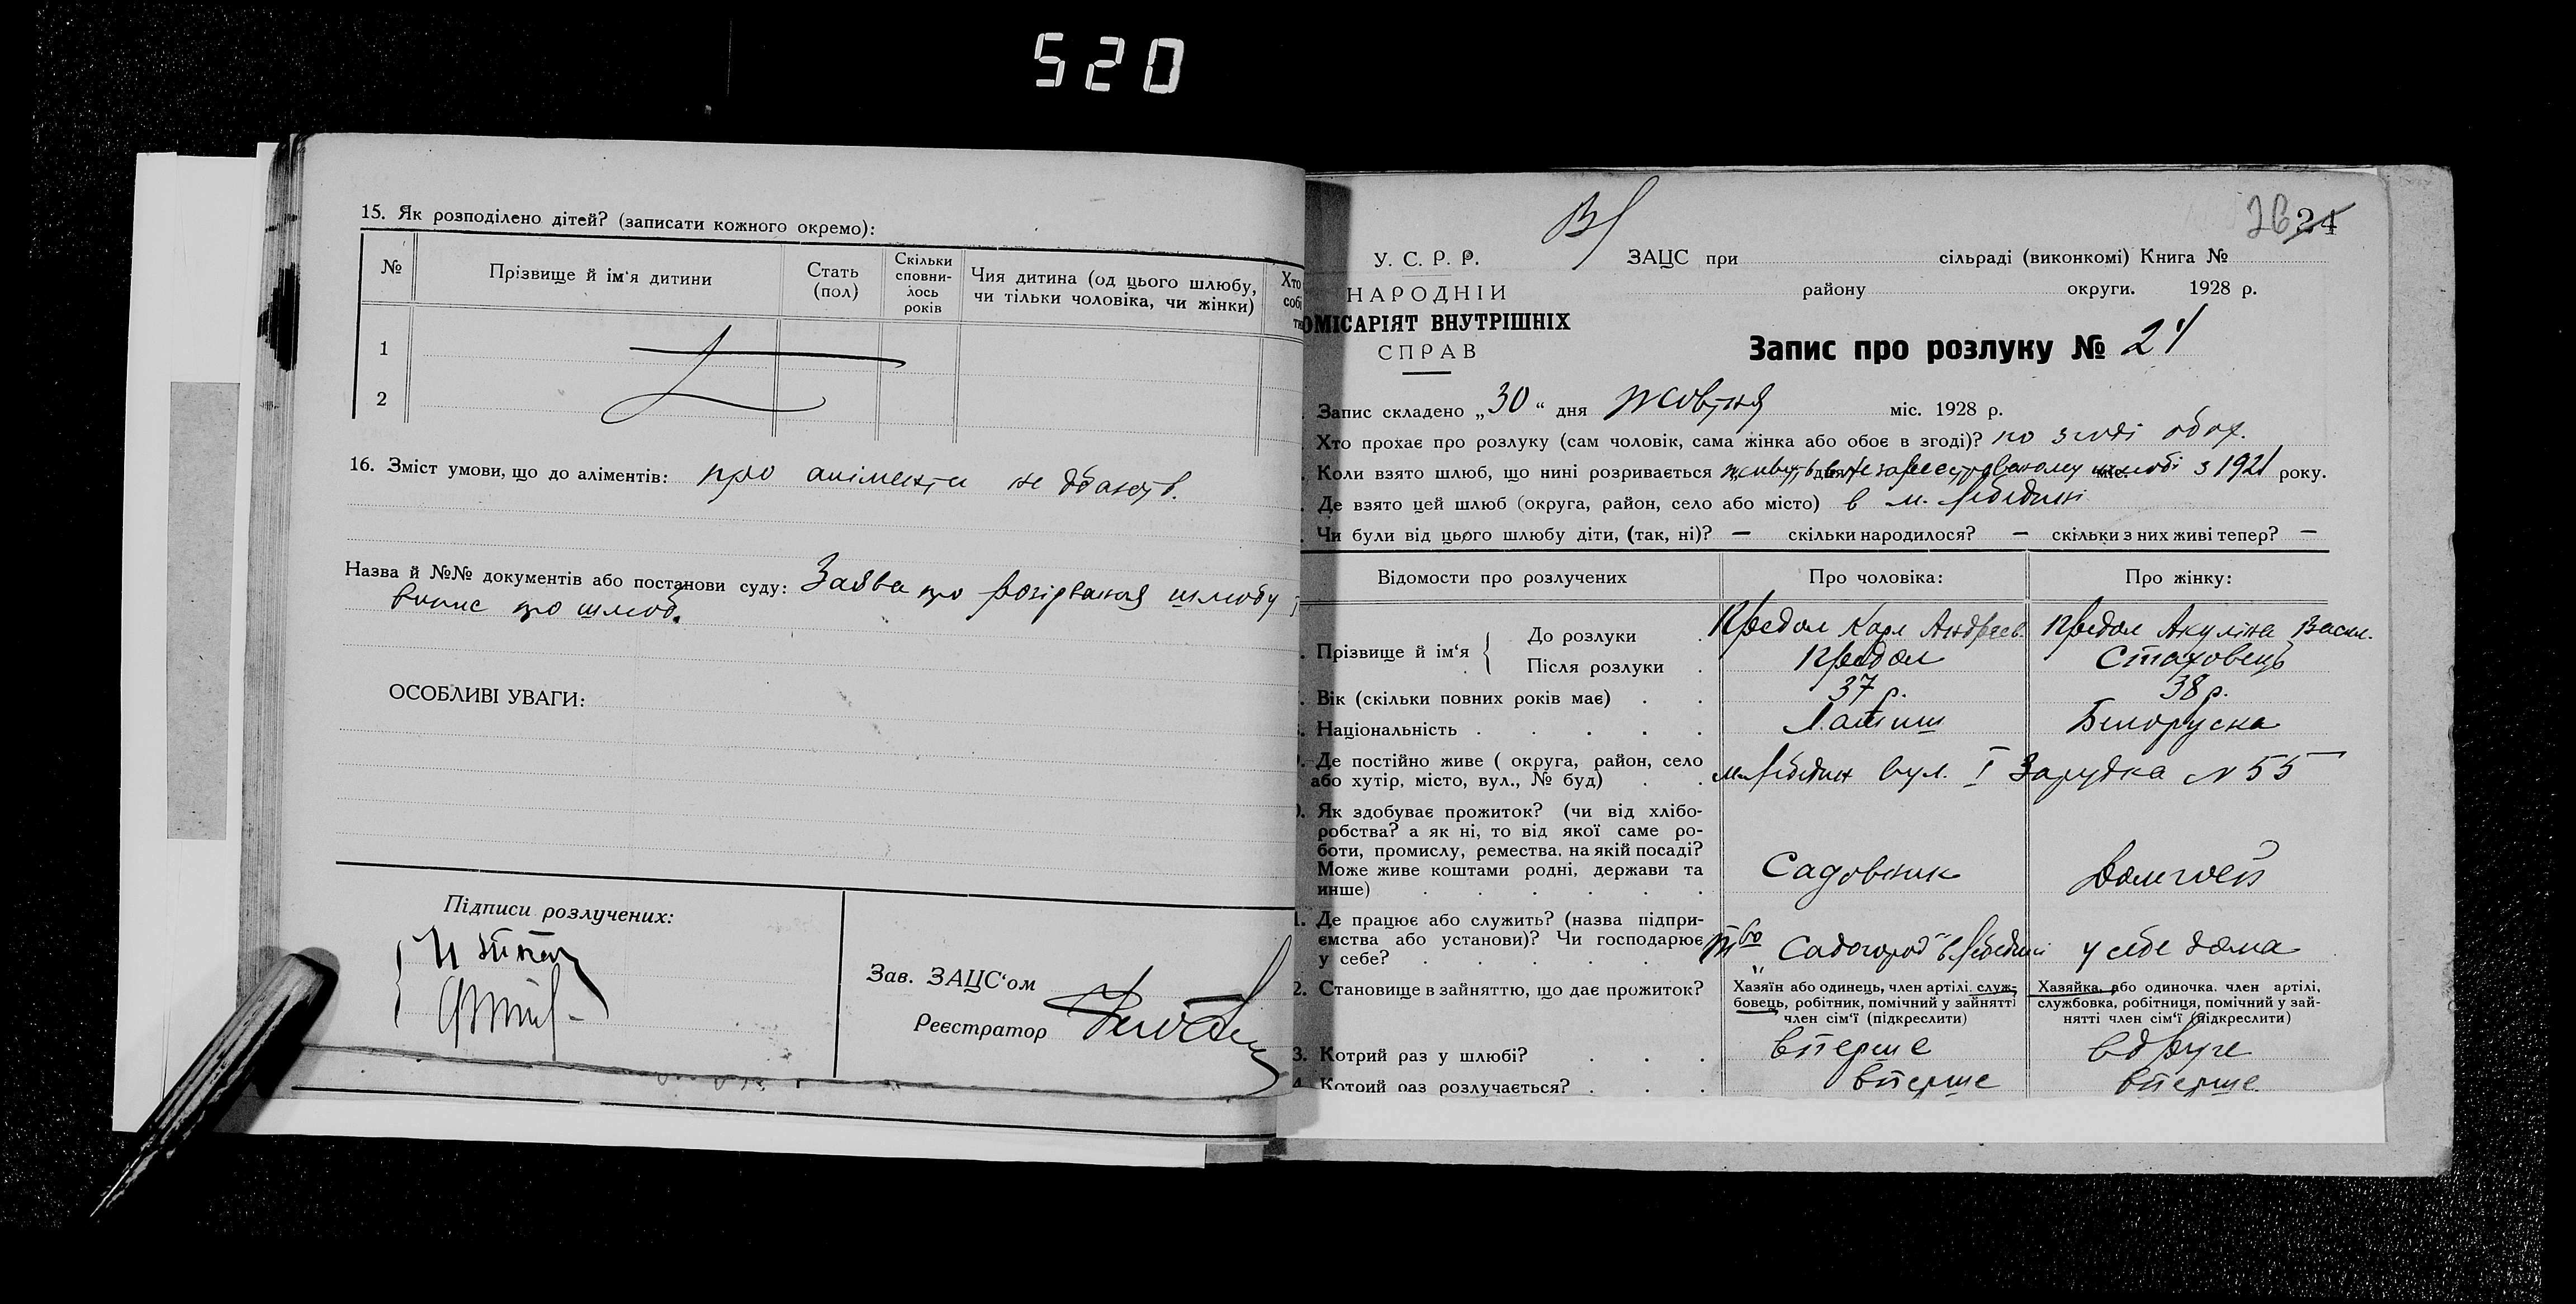 520
15. Як розподілено дітей? (записати кожного окремо):
№ Прізвище й ім‘я дитини Стать (пол) Скільки сповни- лось років Чия дитина (од цього шлюбу, чи тільки чоловіка, чи жінки) Хто собі
1
2
16. Зміст умови, що до аліментів: про аліменти не дбають.
Назва й №№ документів або постанови суду: Заява про розірвання шлюбу
випис про шлюб.
ОСОБЛИВІ УВАГИ:
Підписи розлучених:
Зав. ЗАЦС‘ом
Реєстратор
26 24
У. С. Р. Р. ЗАЦС при сільраді (виконкомі) Книга №
НАРОДНІЙ району округи. 1928 р.
ОМІСАРІЯТ ВНУТРІШНІХ
СПРАВ
Запис про розлуку № 24
Запис складено „30“ дня жовтня міс. 1928 р.
Хто прохає про розлуку (сам чоловік, сама жінка або обоє в згоді)? по згоді обох.
Коли взято шлюб, що нині розривається живуть в не зареєстрованому шлюбі з 1921 року.
Де взято цей шлюб (округа, район, село або місто) в м. Лебедині
Чи були від цього шлюбу діти, (так, ні)? — скільки народилося? — скільки з них живі тепер? —
Відомости про розлучених Про чоловіка: Про жінку:
Прізвище й ім‘я { До розлуки . Предал Карл Андреєв. Предал Акуліна Васил.
Після розлуки . Предал Стаховець
Вік (скільки повних років має) . . 37 р. 38 р.
Національність . . . . . Латиш Білоруска
Де постійно живе ( округа, район, село
або хутір, місто, вул., № буд) . . м. Лебедин вул. I Зарудка № 55
Як здобуває прожиток? (чи від хлібо-
робства? а як ні, то від якої саме ро-
боти, промислу, ремества, на якій посаді?
Може живе коштами родні, держави та
инше) . . . . . . Садовник
1. Де працює або служить? (назва підпри-
ємства або установи)? Чи господарює
у себе? . . . . . Т-во „Садогород" в Лебедині у себе дома
2. Становище в зайняттю, що дає прожиток? Хазяїн або одинець, член артілі, служ-
бовець, робітник, помічний у зайнятті
член сім‘ї (підкреслити)
Хазяйка, або одиночка, член артілі,
службовка, робітниця, помічний у зай-
нятті член сім‘ї (підкреслити)
3. Котрий раз у шлюбі? . . . вперше вдруге
4. Котрий раз розлучається? . . . вперше вперше